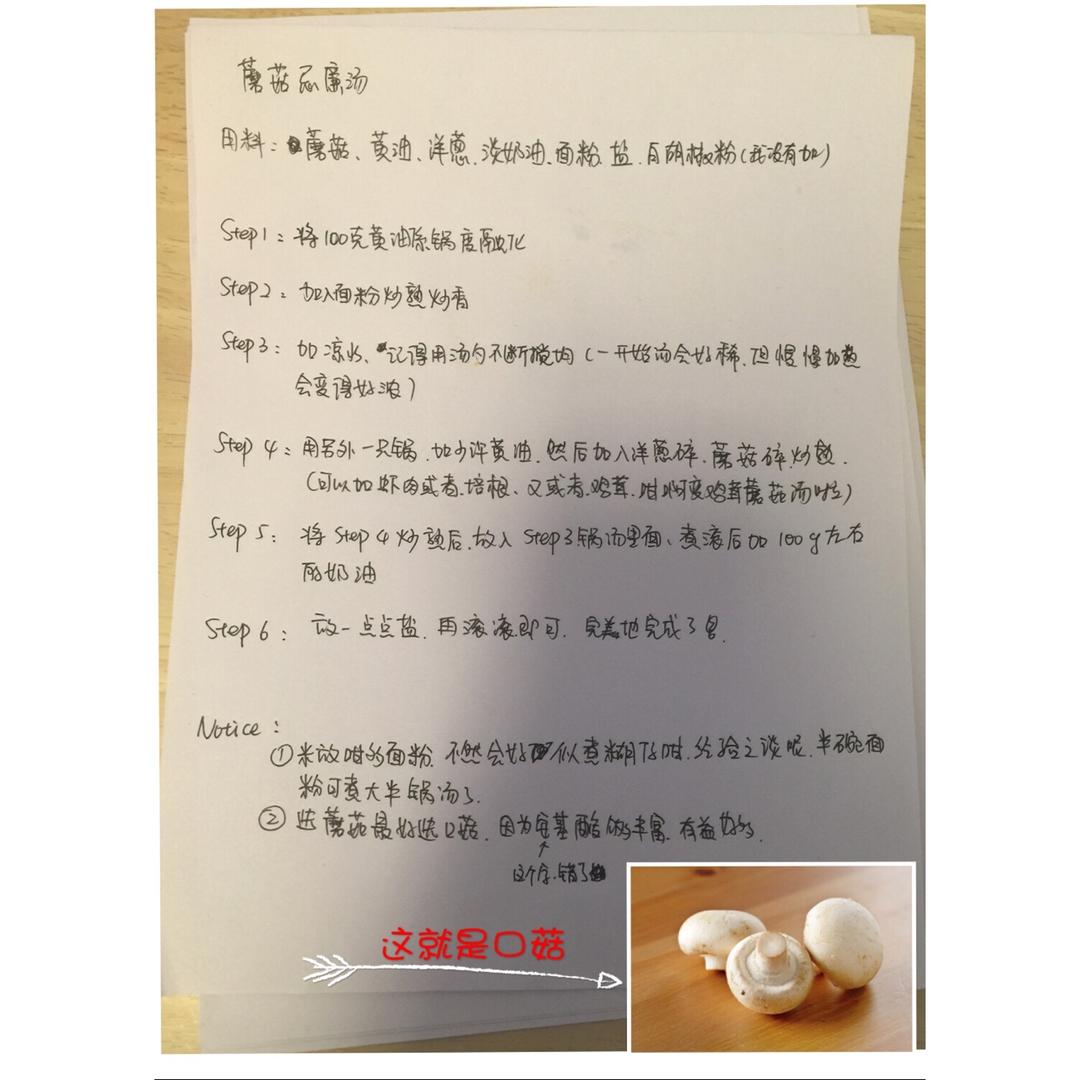 蘑菇忌廉汤
用料：蘑菇、黄油、洋葱、淡奶油、面粉、盐、白胡椒粉(我没有加)
Step1：将100克黄油隔锅度融化
Step2：加入面粉炒熟炒香
Step3：加凉水、记得用汤勺不断搅均(一开始汤会好稀、但慢慢加热
会变得好浓)
Step 4：用另外一只锅，加少许黄油，然后加入洋葱碎、蘑菇碎炒熟.
(可以加虾肉或者培根、又或者鸡茸、咁啊变鸡茸蘑菇汤啦)
Step 5：将Step 4炒熟后，放入Step3锅汤里面、煮滚后加100g左右
奶油
Step 6：放一点点盐，再滚滚即可，完美地完成了
Notice：
①米放咁多面粉，不然会好似煮糊了咁，经验之谈呢，半碗面
粉可煮大半锅汤了.
②选蘑菇最好选口菇，因为基酸丰富，有益好多.
↑
这个字，错了
这就是口菇